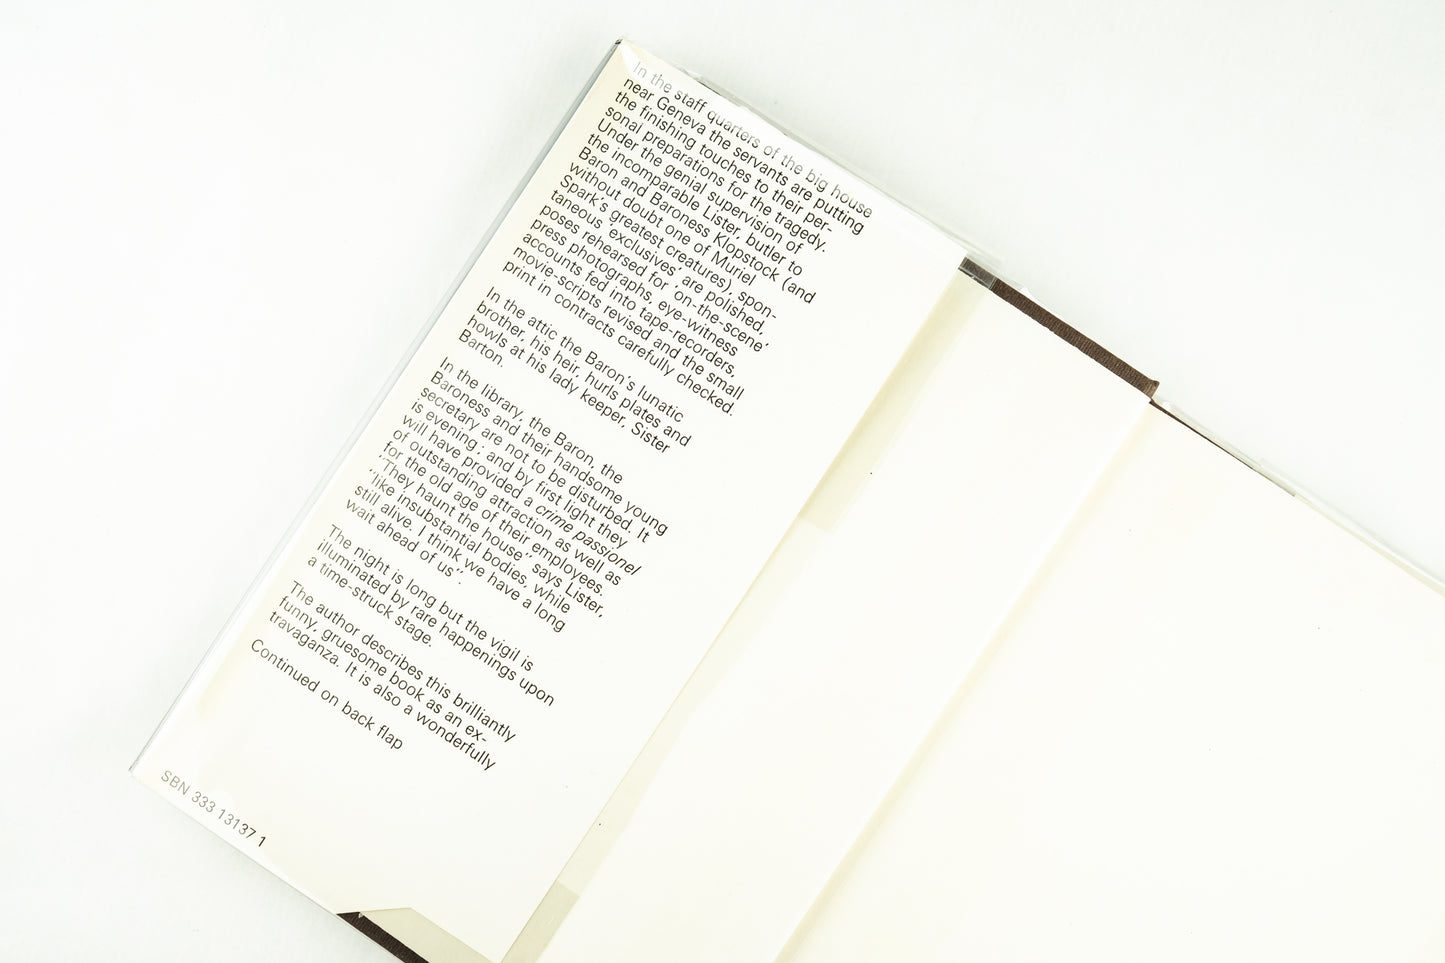 In the staff quarters of the big house
near Geneva the servants are putting
the finishing touches to their per-
sonal preparations for the tragedy.
Under the genial supervision of
the incomparable Lister, butler to
Baron and Baroness Klopstock (and
without doubt one of Muriel
Spark's greatest creatures), spon-
taneous 'exclusives' are polished,
poses rehearsed for 'on-the-scene'
press photographs, eye-witness
accounts fed into tape-recorders,
movie-scripts revised and the small
print in contracts carefully checked.
In the attic the Baron's lunatic
brother, his heir, hurls plates and
howls at his lady keeper, Sister
Barton.
In the library, the Baron, the
Baroness and their handsome young
secretary are not to be disturbed. It
is evening; and by first light they
will have provided a crime passionel
of outstanding attraction as well as
for the old age of their employees.
"They haunt the house", says Lister,
"like insubstantial bodies, while
still alive. I think we have a long
wait ahead of us".
The night is long but the vigil is
illuminated by rare happenings upon
a time-struck stage.
The author describes this brilliantly
funny, gruesome book as an ex-
travaganza. It is also a wonderfully
Continued on back flap
SBN 333 13137 1